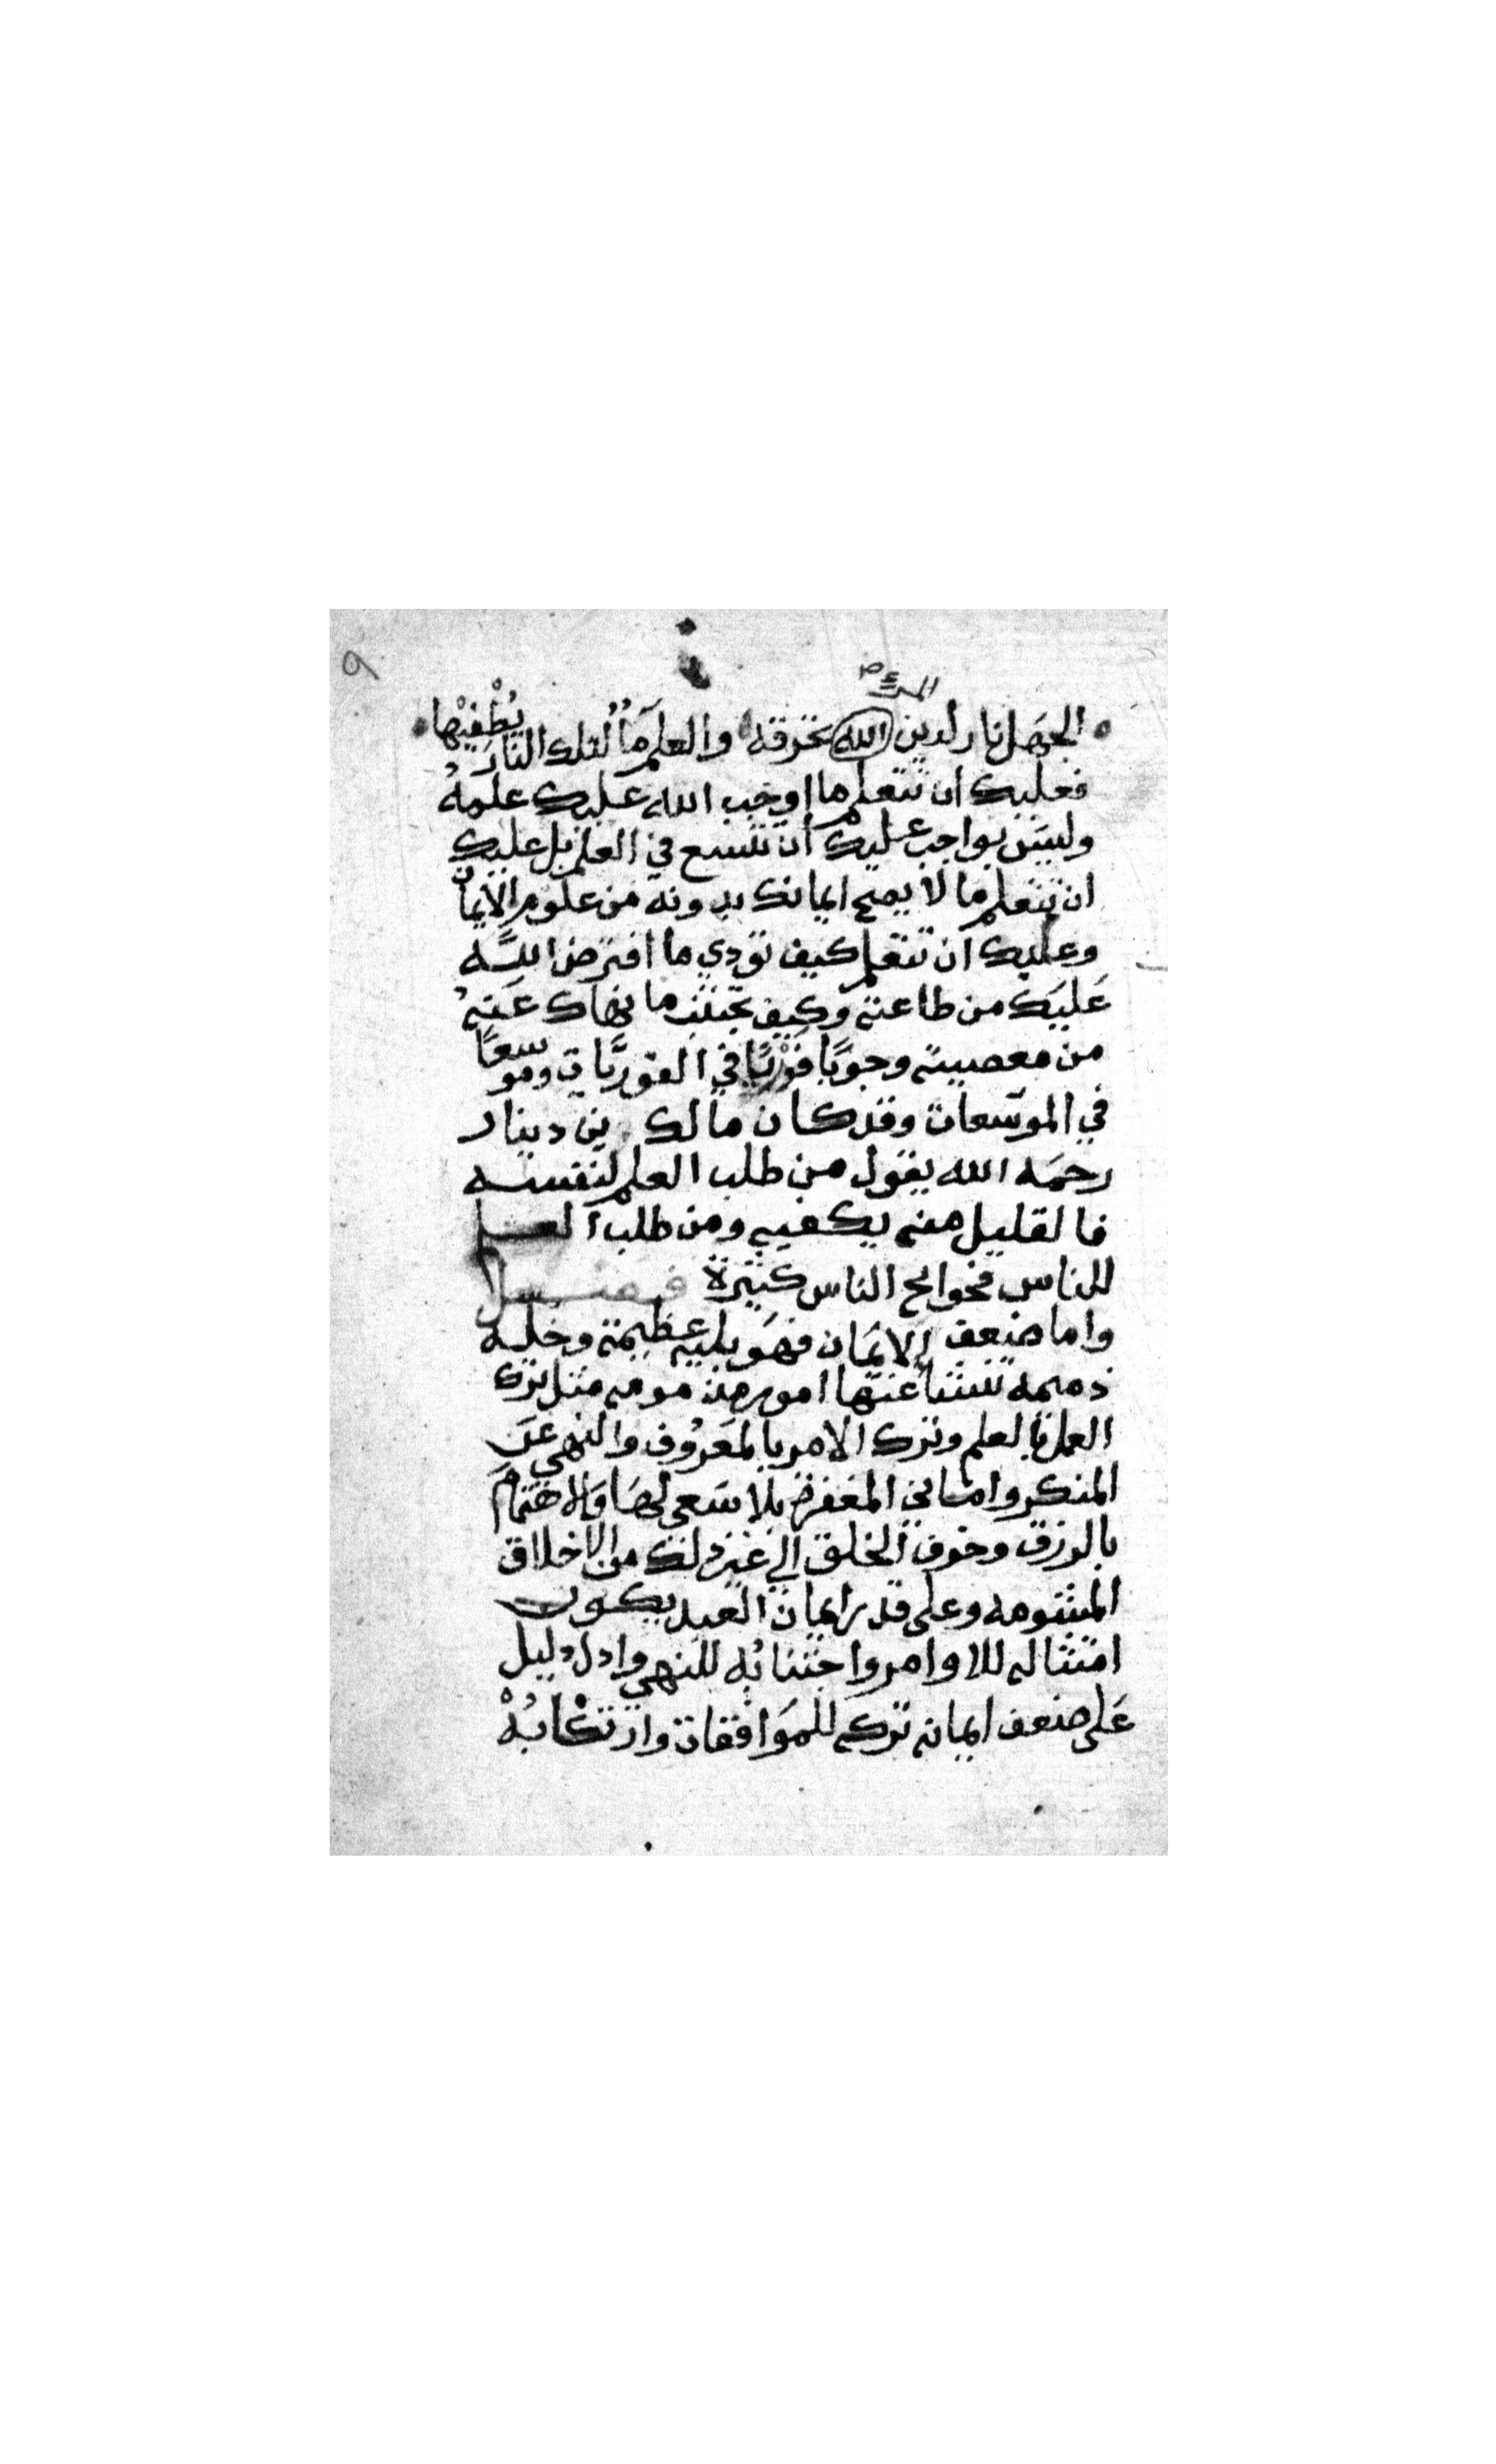 ٩
المرء صح
الجهل نار لدين الله تحرقه والعلم ماءٌ لتلك النار يُطْفيْها
فعليك ان تتعلم ما اوجب الله عليك علمهُ
وليس بواجب عليك أن تتسع في العلم بل عليك
ان تتعلم ما لا يصح ايمانك بدونه من علوم الايمان
وعليك ان تتعلم كيف تؤدي ما افترض اللّه
عَليَك من طاعته وكيف تجتنب ما نهاك عَنهُ
من معصيته وجوبًا فوْريًا في الفوريَّات وموسعًا
في الموسّعات وقد كان مالك بن دينار
رحمَه الله يقول من طلب العلم لنفسه
فالقليل منه يكفيه ومن طلب العلم
للناس فحوايج الناس كثيرة فصل
واما ضعف الايمَان فهَو بليه عظيمة وخله
ذميمه تنشأ عنها امور مذمومه مثل ترك
العمل بالعلم وترك الامر بالمعَرُوف والنهي عَن
المنكر واماني المغفرة بلا سَعى لهَا والاهتمام
بالرزق وخوف الخلق الي غير ذلك من الاخلاق
المشومه وعلى قدر ايمان العبد يكون
امتثاله للاوامر واجتنابُه للنهي وادل دليل
عَلى ضعف ايمانه تركه للموَافقات وارتكابُهْ